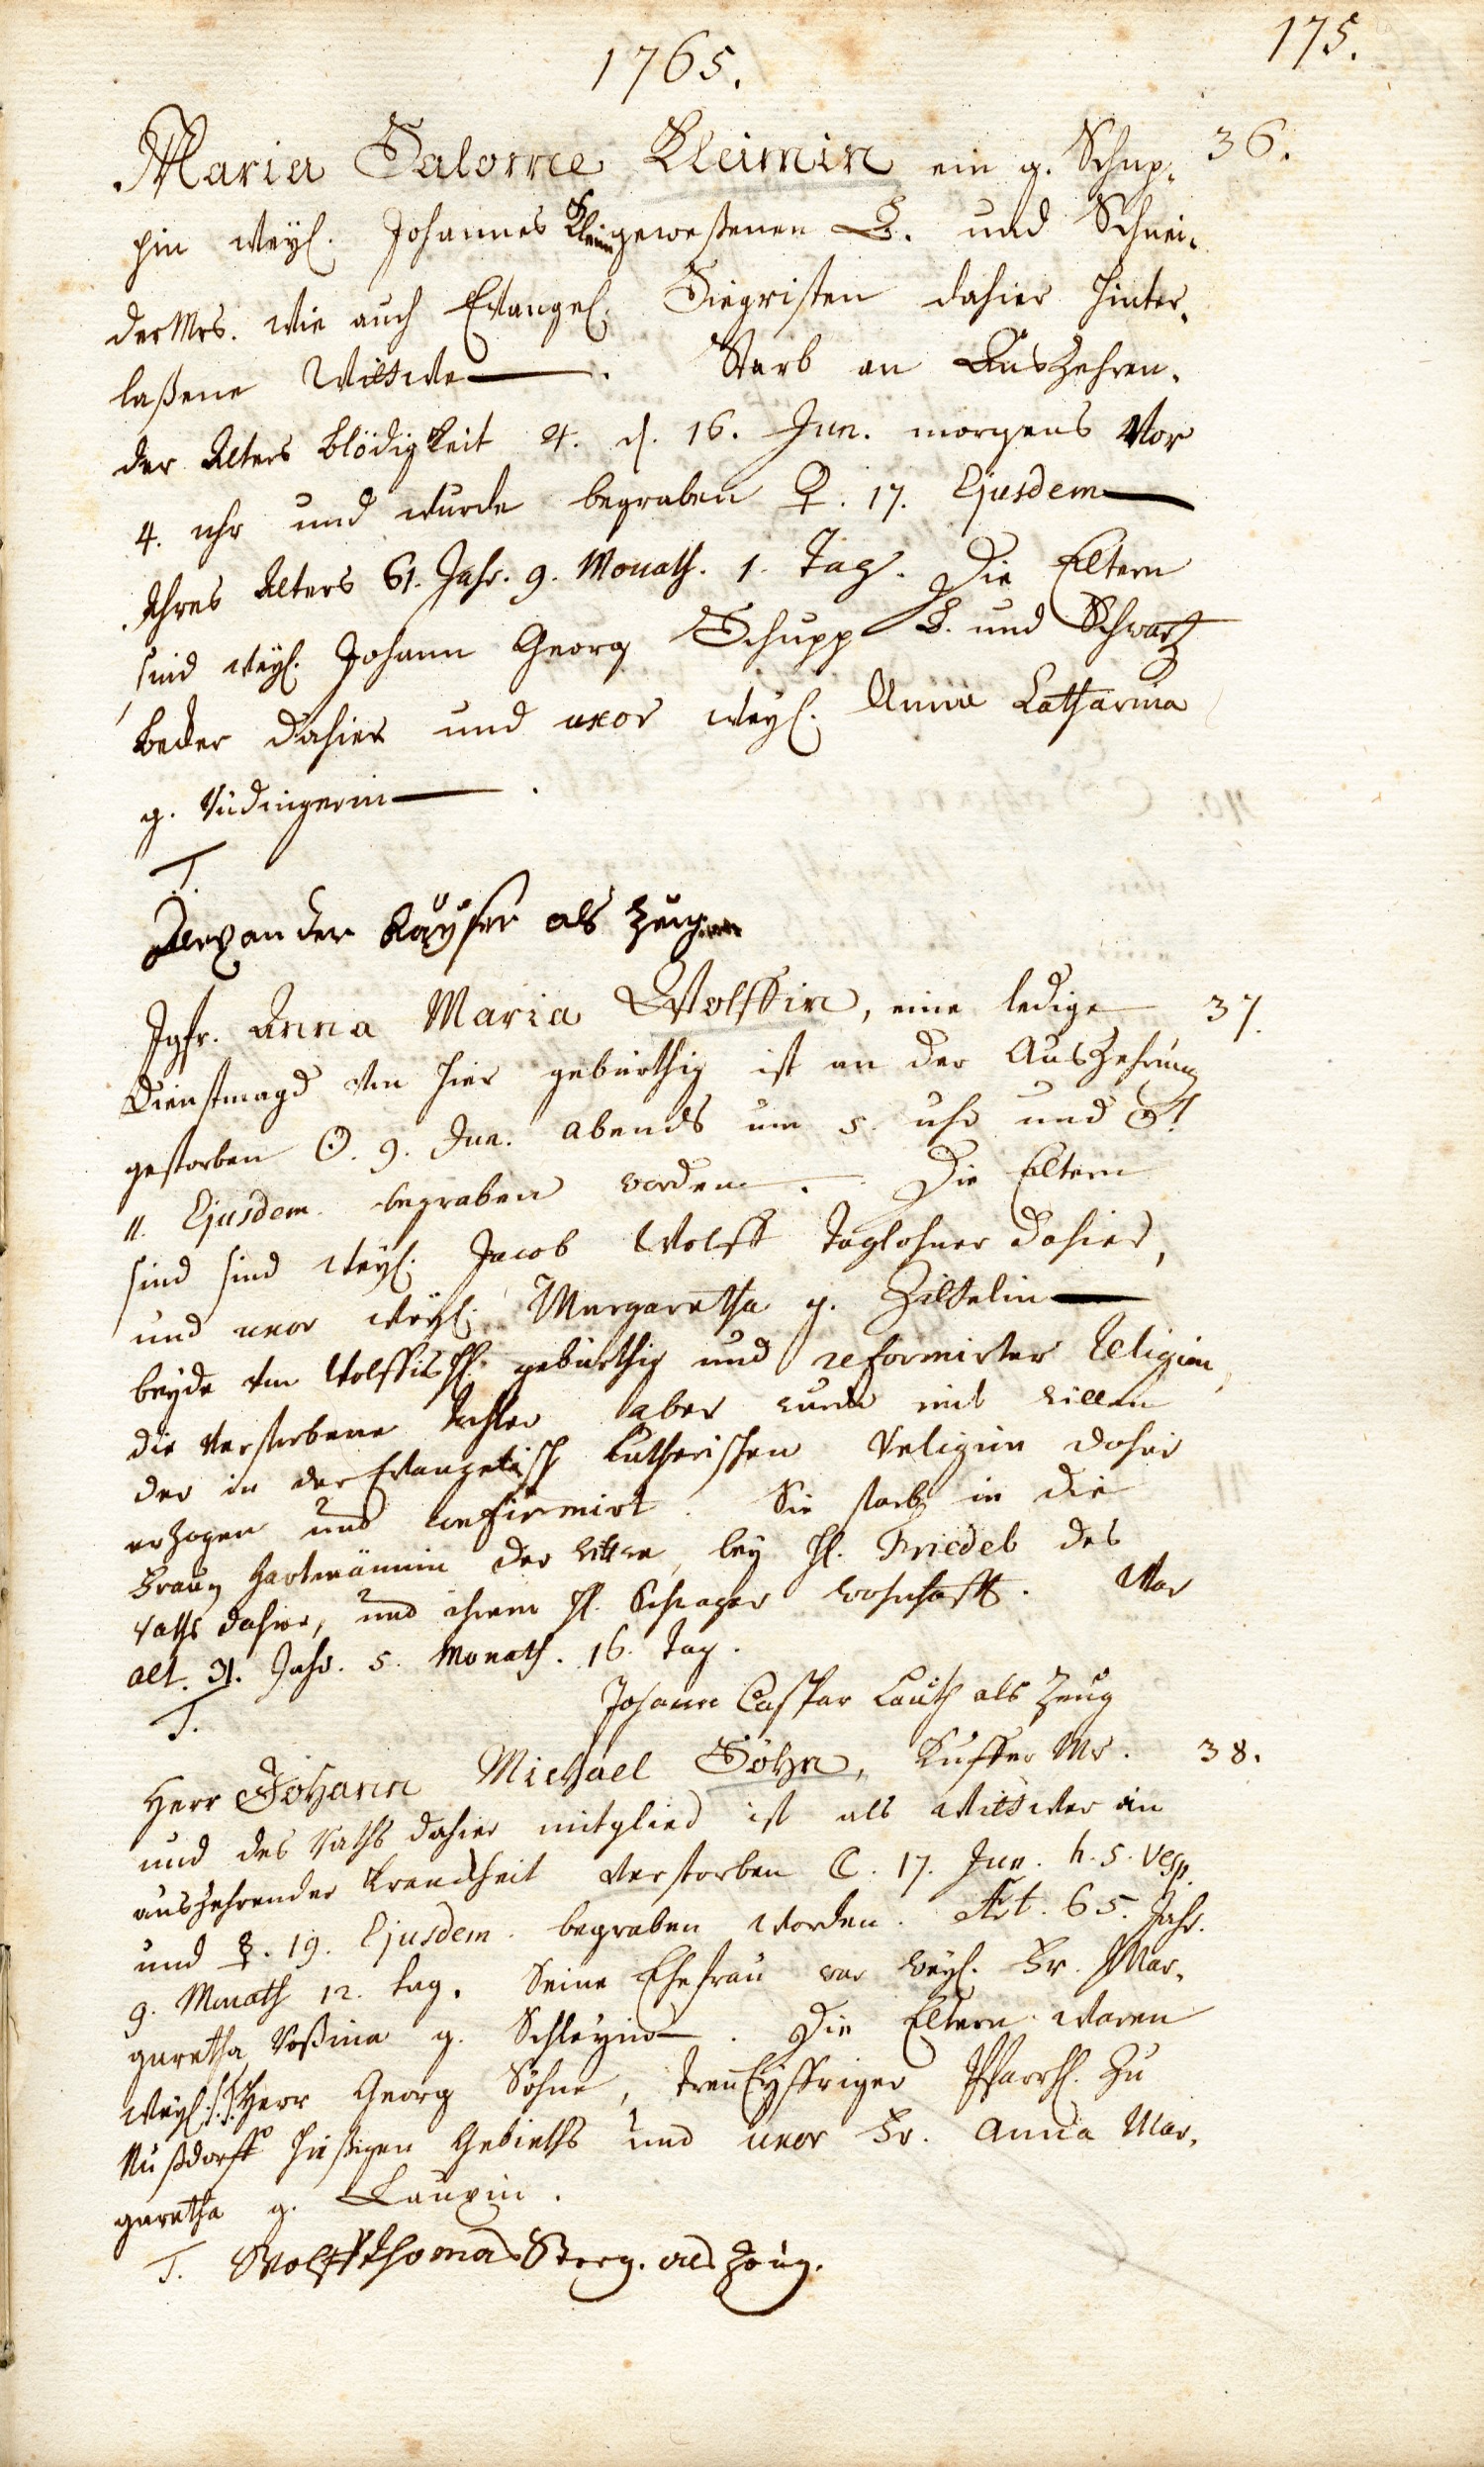 175.
1765.
Maria Salome Kleimin ein g. Schup- 36.
pin weyl. Johannes Kleim gewesenen B. und Schnei-
der Mrs. wie auch Evangel. Siegristen dahier hinter-
laßene Wittwe —. Starb an Auszehren-
der Alters Blödigkeit ♃. d. 16. Jun. morgens vor
4. uhr und wurde begraben ♀. 17. Ejusdem —
Ihres Alters 61. Jahr. 9. Monath. 1. Tag. Die Eltern
sind weyl. Johann Georg Schupp B. und Schwartz
beder dahier und uxor weyl. Anna Catharina
g. Rüdingerin —.
T.
Alexander Kayser als zeugen
Jgfr. Anna Maria Wolffin, eine ledige 37.
Dienstmagd von hier gebürthig ist an der Auszehrung
gestorben ☉. 9. Jun. abends um 5. uhr und ♂.
11. Ejusdem begraben worden —. Die Eltern
sind sind weyl. Jacob Wolff Taglohner dahier,
und uxor weyl. Margaretha g. Ziltelin —
beyde von Wolffish. gebürthig und reformirter Religion,
die verstorbene Tochter aber wurde mit willen
der in der Evangelisch Lutherischen Religion dahier
erzogen und confirmirt. Sie starb in die
Fraug Hartmännin der Wittwe, bey H. Friedel des
raths dahier, und ihrem H. Schwager wohnhafft. War
alt. 31. Jahr. 5. Monath. 16. Tag.
T. Johann Caspar Lauth als Zeug
Herr Johann Michael Söhn, Kuffer Mr. 38.
und des Raths dahier mitglied ist als Wittwer an
auszehrender Kranckheit verstorben ☾. 17. Jun. h. 5. vesp.
und ☿. 19. Ejusdem begraben worden. Æt. 65. Jahr.
9. Monath 12. tag. Seine Ehefrau war weyl. Fr. Mar-
garetha Rosina g. Schleyin —. Die Eltern waren
weyl. S. T. Herr Georg Söhne, treu Eyffriger Pfarrh. zu
Nußdorff hießigen Gebieths und uxor Fr. Anna Mar-
garetha g. Lauxin.
T. Wolff Thomas Berg. als Zeug.